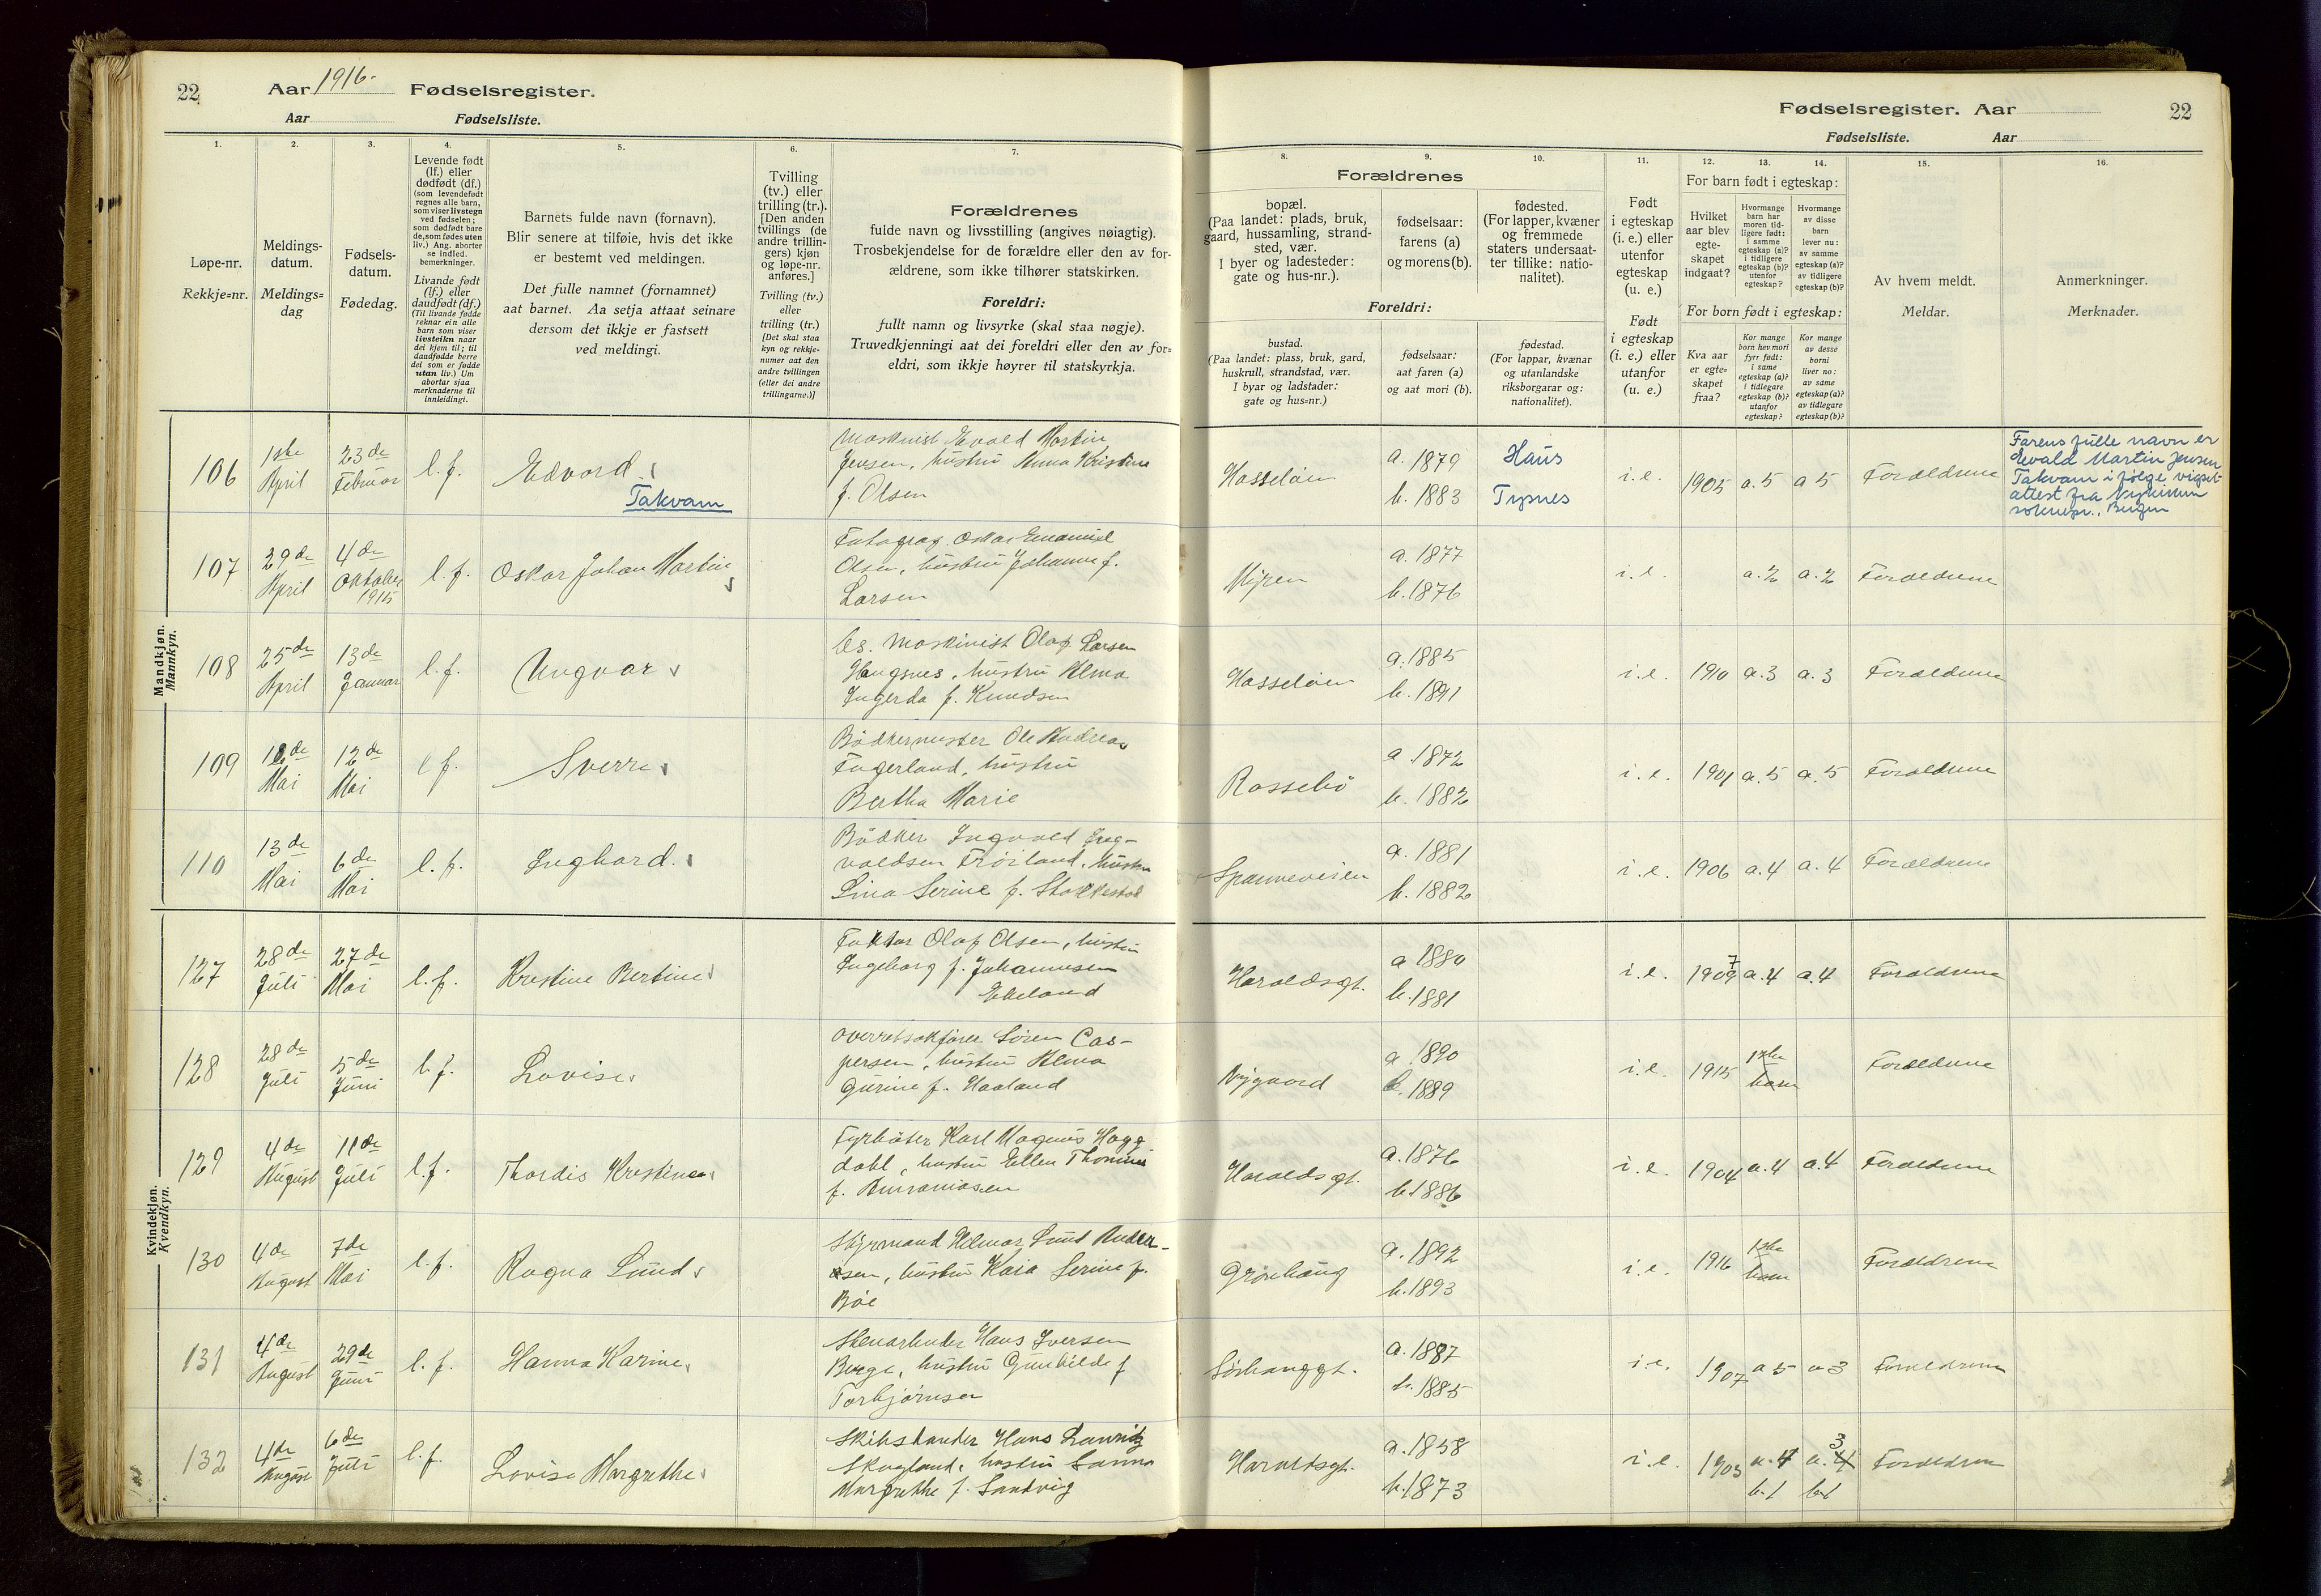 22
Aar 1916.
Fødselsregister.
Aar
Fødselsliste.
Fødselsregister. Aar
22
Fødselsliste.
Aar
1.
Løpe-nr.
Rekkje=nr.
2.
Meldings-
datum.
Meldings=
dag
3.
Fødsels-
datum.
Fødedag.
4.
Levende født
(lf.) eller
dødfødt (df.)
(som levendefødt
regnes alle barn,
som viser livstegn
ved fødselen;
som dødfødt bare
de, som fødes uten
liv.) Ang. aborter
se indled.
bemerkninger.
Livande født
(lf.) eller
daudfødt (df.)
(Til livande fødde
reknar ein alle
barn som viser
livsteikn naar
dei kjem til; til
daudfødde berre
dei som er fødde
utan liv.) Um
abortar sjaa
merknaderne til
innleidingi.
5.
Barnets fulde navn (fornavn).
Blir senere at tilføie, hvis det ikke
er bestemt ved meldingen.
Det fulle namnet (fornamnet)
aat barnet. Aa setja attaat seinare
dersom det ikkje er fastsett
ved meldingi.
6.
Tvilling
(tv.) eller
trilling (tr.).
[Den anden
tvillings (de
andre trillin-
gers) kjøn
og løpe-nr.
anføres.]
Tvilling (tv.)
eller
trilling (tr.)
[Det skal staa
kyn og rekkje-
numer aat den
andre tvillingen
(eller dei andre
trillingarne.)]
7.
Forældrenes
fulde navn og livsstilling (angives nøiagtig).
Trosbekjendelse for de forældre eller den av for-
ældrene, som ikke tilhører statskirken.
Foreldri:
fullt namn og livsyrke (skal staa nøgje).
Truvedkjenningi aat dei foreldri eller den av for=
eldri, som ikkje høyrer til statskyrkja.
Forældrenes
8.
bopæl.
(Paa landet: plads, bruk,
gaard, hussamling, strand-
sted, vær.
I byer og ladesteder:
gate og hus-nr.).
9.
fødselsaar:
farens (a)
og morens (b).
10.
fødested.
(For lapper, kvæner
og fremmede
staters undersaat-
ter tillike: natio-
nalitet).
Foreldri:
bustad.
(Paa landet: plass, bruk, gard,
huskrull, strandstad, vær.
I byar og ladstader:
gate og hus=nr.)
fødselsaar:
aat faren (a)
og aat mori (b).
fødestad.
(For lappar, kvænar
og utanlandske
riksborgarar og:
nationalitet).
11.
Født
i egteskap
(i. e.) eller
utenfor
egteskap
(u. e.)
Født
i egteskap
(i. e.) eller
utanfor
(u. e.)
12.
13.
14.
For barn født i egteskap:
Hvilket
aar blev
egte-
skapet
indgaat?
Hvormange
barn har
moren tid-
ligere født:
i samme
egteskap (a)?
i tidligere
egteskap (b)?
utenfor
egteskap?
Hvormange
av disse
barn
lever nu:
av samme
egteskap (a)?
av tidligere
egteskap (b)?
For born født i egteskap:
Kva aar
er egte=
skapet
fraa?
Kor mange
born hev mori
fyrr født:
i same
egteskap (a)?
i tidlegare
egteskap (b)?
utanfor
egteskap?
Kor mange
av desse
borni
liver no:
av same
egteskap (a)?
av tidlegare
egteskap (b)?
15.
Av hvem meldt.
Meldar.
16.
Anmerkninger.
Merknader.
Mandkjøn.
Mannkyn.
106
1ste
April
23de
Februar
l. f.
Edvard
Takvam
Maskinist Evald Martin
Jensen, hustru Anna Kristine
f. Olsen
Hasseløen
a. 1879
b. 1883
Haus
Tysnes
i. e.
1905
a. 5
a 5
Forældrene
Farens fulle navn er
Evald Martin Jensen
Takvam i følge vigsel-
attest fra Nykirken
soknepr., Bergen
107
29de
April
4de
Oktober
1915
l. f.
Oskar Johan Martin
Fotograf Oskar Emanuel
Olsen, hustru Johanne f.
Larsen
Myren
a. 1877
b. 1876
i. e.
a. 2
a. 2
Forældrene
108
25de
April
13de
Januar
l. f.
Ingvar
Es. Maskinist Olaf Larsen
Haugsnes, hustru Alma
Ingerda f. Knudsen
Hasseløen
a. 1885
b. 1891
i. e.
1910
a. 3
a. 3
Forældrene
109
de
Mai
12de
Mai
l f.
Sverre
Bødkermester Ole Andreas
Fugerland, hustru
Bertha Marie
Rossebø
a. 1872
b. 1882
i. e.
1901
a. 5
a. 5
Forældrene
110
13de
Mai
6de
Mai
l. f.
Inghard.
Bødker Ingvald Ing-
valdsen Frøiland, hustru
Lina Serine f. Stakkestad
Spanneveien
a. 1881
b. 1882
i. e.
1906
a. 4
a. 4
Forældrene
Kvindekjøn.
Kvendkyn.
127
28de
Juli
27de
Mai
l. f.
Kristine Bertine
Faktor Olaf Olsen, hustru
Ingeborg f. Johannesen
Ekeland
Haraldsgt.
a 1880
b. 1881
i. e.
1907
a. 4
a. 4
Forældrene
128
28de
Juli
5de
Juni
l. f.
Lovise
Overretsakfører Søren Cas-
persen, hustru Alma
Gurine f. Haaland
Nygaard
a 1890
b. 1889
i. e.
1915
1ste
barn
Forældrene
129
4de
August
11de
Juli
l. f.
Thordis Kristine
Fyrbøter Karl Magnus Hagg
dahl, hustru Ellen Thomine
f. Amraniasen
Haraldsgt.
a. 1876
b. 1886
i. e.
1904
a. 4
a. 4
Forældrene
130
4de
August
7de
Mai
l. f.
Ragna Lund
Styrmand Hilmar Lund Ander-
sen, hustru Kaia Serine f.
Bøe
Grønhaug
a. 1892
b. 1893
i. e.
1916
1ste
barn
Forældrene
131
4de
August
29de
Juni
l. f.
Hanna Karine
Stenarbeider Hans Iversen
Berge, hustru Gunhilde f
Torbjørnsen
Sørhauggt.
a. 1887
b. 1885
i. e.
1907
a 5
a 3
Forældrene
132
4de
August
6de
Juli
l. f.
Lovise Margrethe
Skibstømder Hans Lauritz
Skogland, hustru Sanna
Margrethe f. Sandvig
Haraldsgt.
a. 1858
b. 1873
i. e.
1903
a. 4
b. 1
a. 3
b. 1
Forældrene